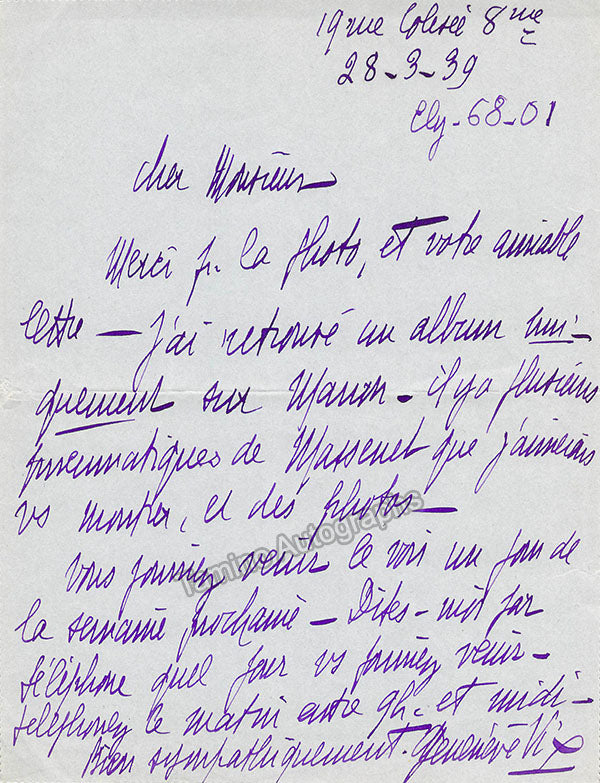 19 rue Colisée 8me
28-3-39
Ely-68-01
cher Monsieur
Merci pr. la photo, et votre aimable
lettre — j'ai retrouvé un album uni-
quement sur Manon - il y a plusieurs
pneumatiques de Massenet que j'aimerais
vs montrer, et des photos —
Tamino Autographs
Vous pourriez venir le voir un jour de
la semaine prochaine — Dites-moi par
téléphone quel jour vs pourriez venir -
telephonez le matin entre 9h. et midi -
Bien sympathiquement. Geneviève Vix